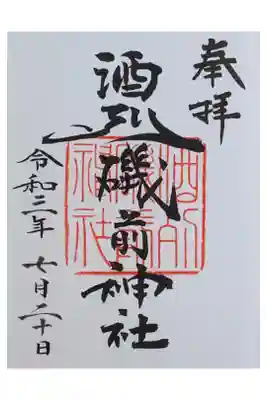 奉拝
酒列磯前神社
酒列
磯前
神社
令和二年 七月二十日